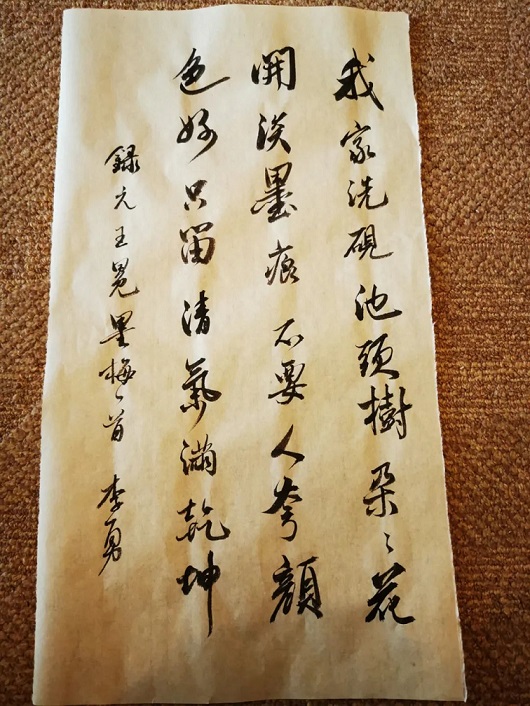 我家洗硯池頭樹朵〻花
開淡墨痕不要人夸顏
色好只留清氣滿乾坤
錄元王冕墨梅一首 李勇